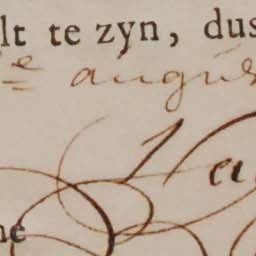 lt te zyn, dus
e augus
Ha
ne